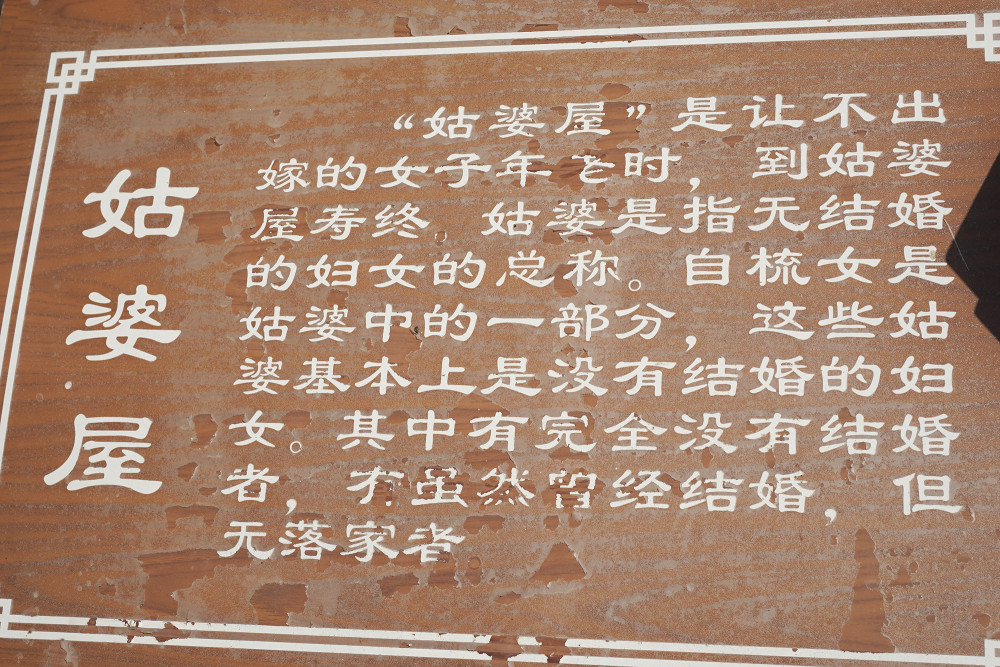 姑婆屋
“姑婆屋”是让不出
嫁的女子年老时，到姑婆
屋寿终。姑婆是指无结婚
的妇女的总称。自梳女是
姑婆中的一部分，这些姑
婆基本上是没有结婚的妇
女。其中有完全没有结婚
者，有虽然曾经结婚，但
无落家者